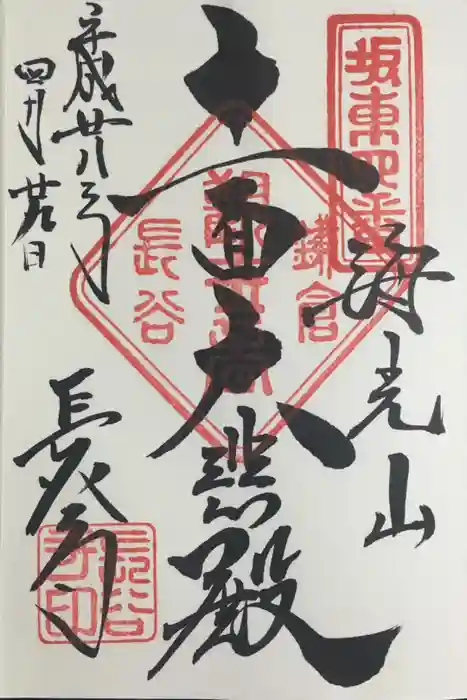 坂東四番
海光山
十一面大悲殿
鎌倉
長谷
平成廿八年
四月
長谷寺
長谷寺印